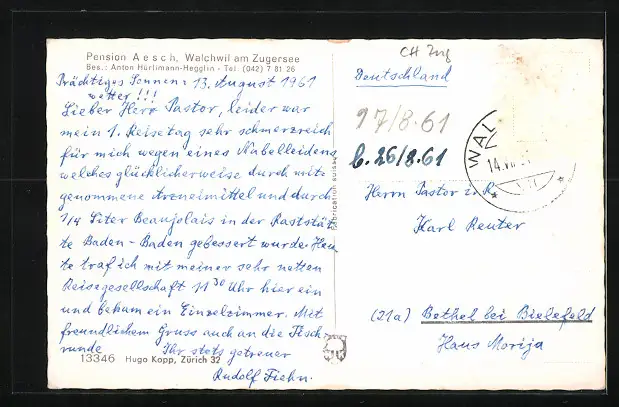 Pension Aesch, Walchwil am Zugersee
Bes.: Anton Hürlimann-Hegglin - Tel. (042) 7 81 26
Prächtiges Sonnen: 13. August 1961
wetter!!!
Lieber Herr Pastor, leider war
mein 1. Reisetag sehr schmerzreich
für mich wegen eines Nabelleidens
welches glücklicherweise durch mitge
genommene Arzneimittel und durch
1/4 Liter Beaujolais in der Raststät
te Baden-Baden gebessert wurde. Heu
te traf ich mit meiner sehr netten
Reisegesellschaft 11 30 Uhr hier ein
und bekam ein Einzelzimmer. Mit
freundlichem Gruss auch an die Tisch
runde Ihr stets getreuer
Rudolf Fiehn.
13346 Hugo Kopp, Zürich 32
Fabrication suisse
CH Zug
Deutschland
17/8.61
b. 26/8.61
WAL
14.VI
Herrn Pastor i. R.
Karl Reuter
(21a) Bethel bei Bielefeld
Haus Morija